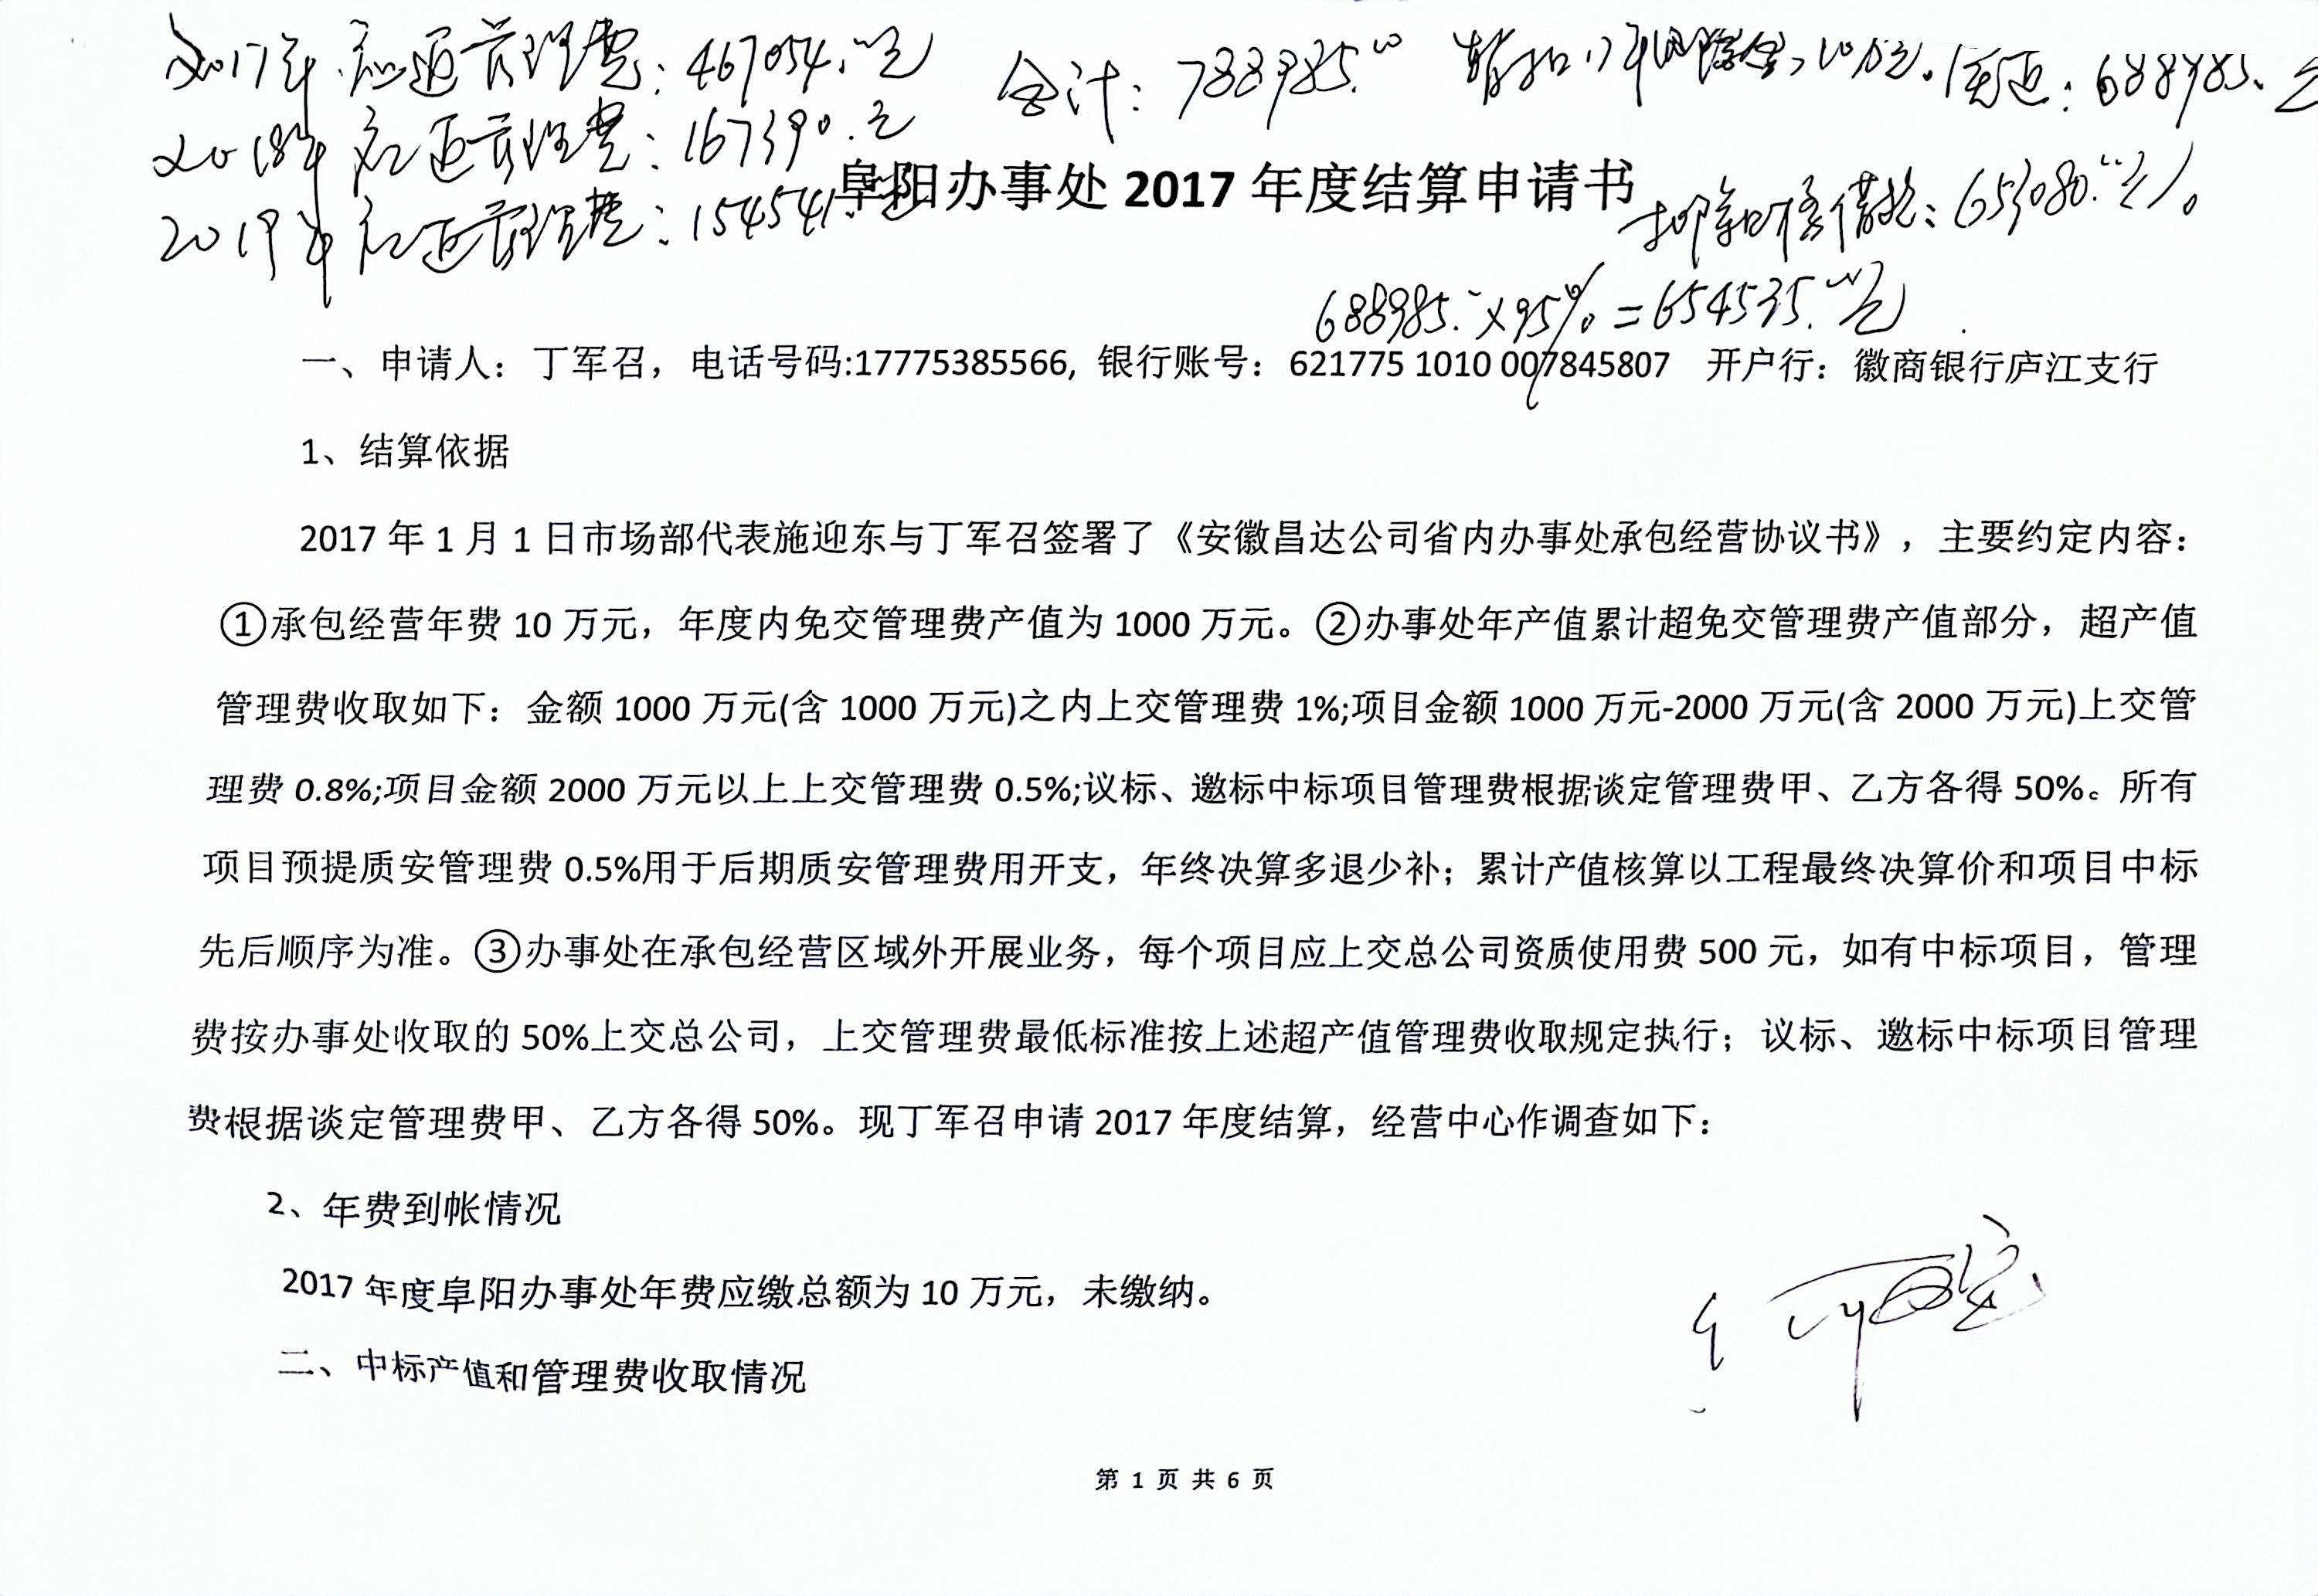 2017年应返管理费：467054.00元
合计：788985.00
暂扣17年风险金10万元。
应返：688985.元
2018年应返管理费：167390.元
2019年应返管理费：154541.元
阜阳办事处 2017 年度结算申请书
扣除借款：653080.00元）。
688985.×95%=654535.00元
一、申请人：丁军召，电话号码:17775385566, 银行账号：621775 1010 007845807 开户行：徽商银行庐江支行
1、结算依据
2017 年 1 月 1 日市场部代表施迎东与丁军召签署了《安徽昌达公司省内办事处承包经营协议书》，主要约定内容：
①承包经营年费 10 万元，年度内免交管理费产值为 1000 万元。②办事处年产值累计超免交管理费产值部分，超产值
管理费收取如下：金额 1000 万元(含 1000 万元)之内上交管理费 1%;项目金额 1000 万元-2000 万元(含 2000 万元)上交管
理费 0.8%;项目金额 2000 万元以上上交管理费 0.5%;议标、邀标中标项目管理费根据谈定管理费甲、乙方各得 50%。所有
项目预提质安管理费 0.5%用于后期质安管理费用开支，年终决算多退少补；累计产值核算以工程最终决算价和项目中标
先后顺序为准。③办事处在承包经营区域外开展业务，每个项目应上交总公司资质使用费 500 元，如有中标项目，管理
费按办事处收取的 50%上交总公司，上交管理费最低标准按上述超产值管理费收取规定执行；议标、邀标中标项目管理
费根据谈定管理费甲、乙方各得 50%。现丁军召申请 2017 年度结算，经营中心作调查如下：
2、年费到帐情况
2017 年度阜阳办事处年费应缴总额为 10 万元，未缴纳。
二、中标产值和管理费收取情况
第 1 页 共 6 页